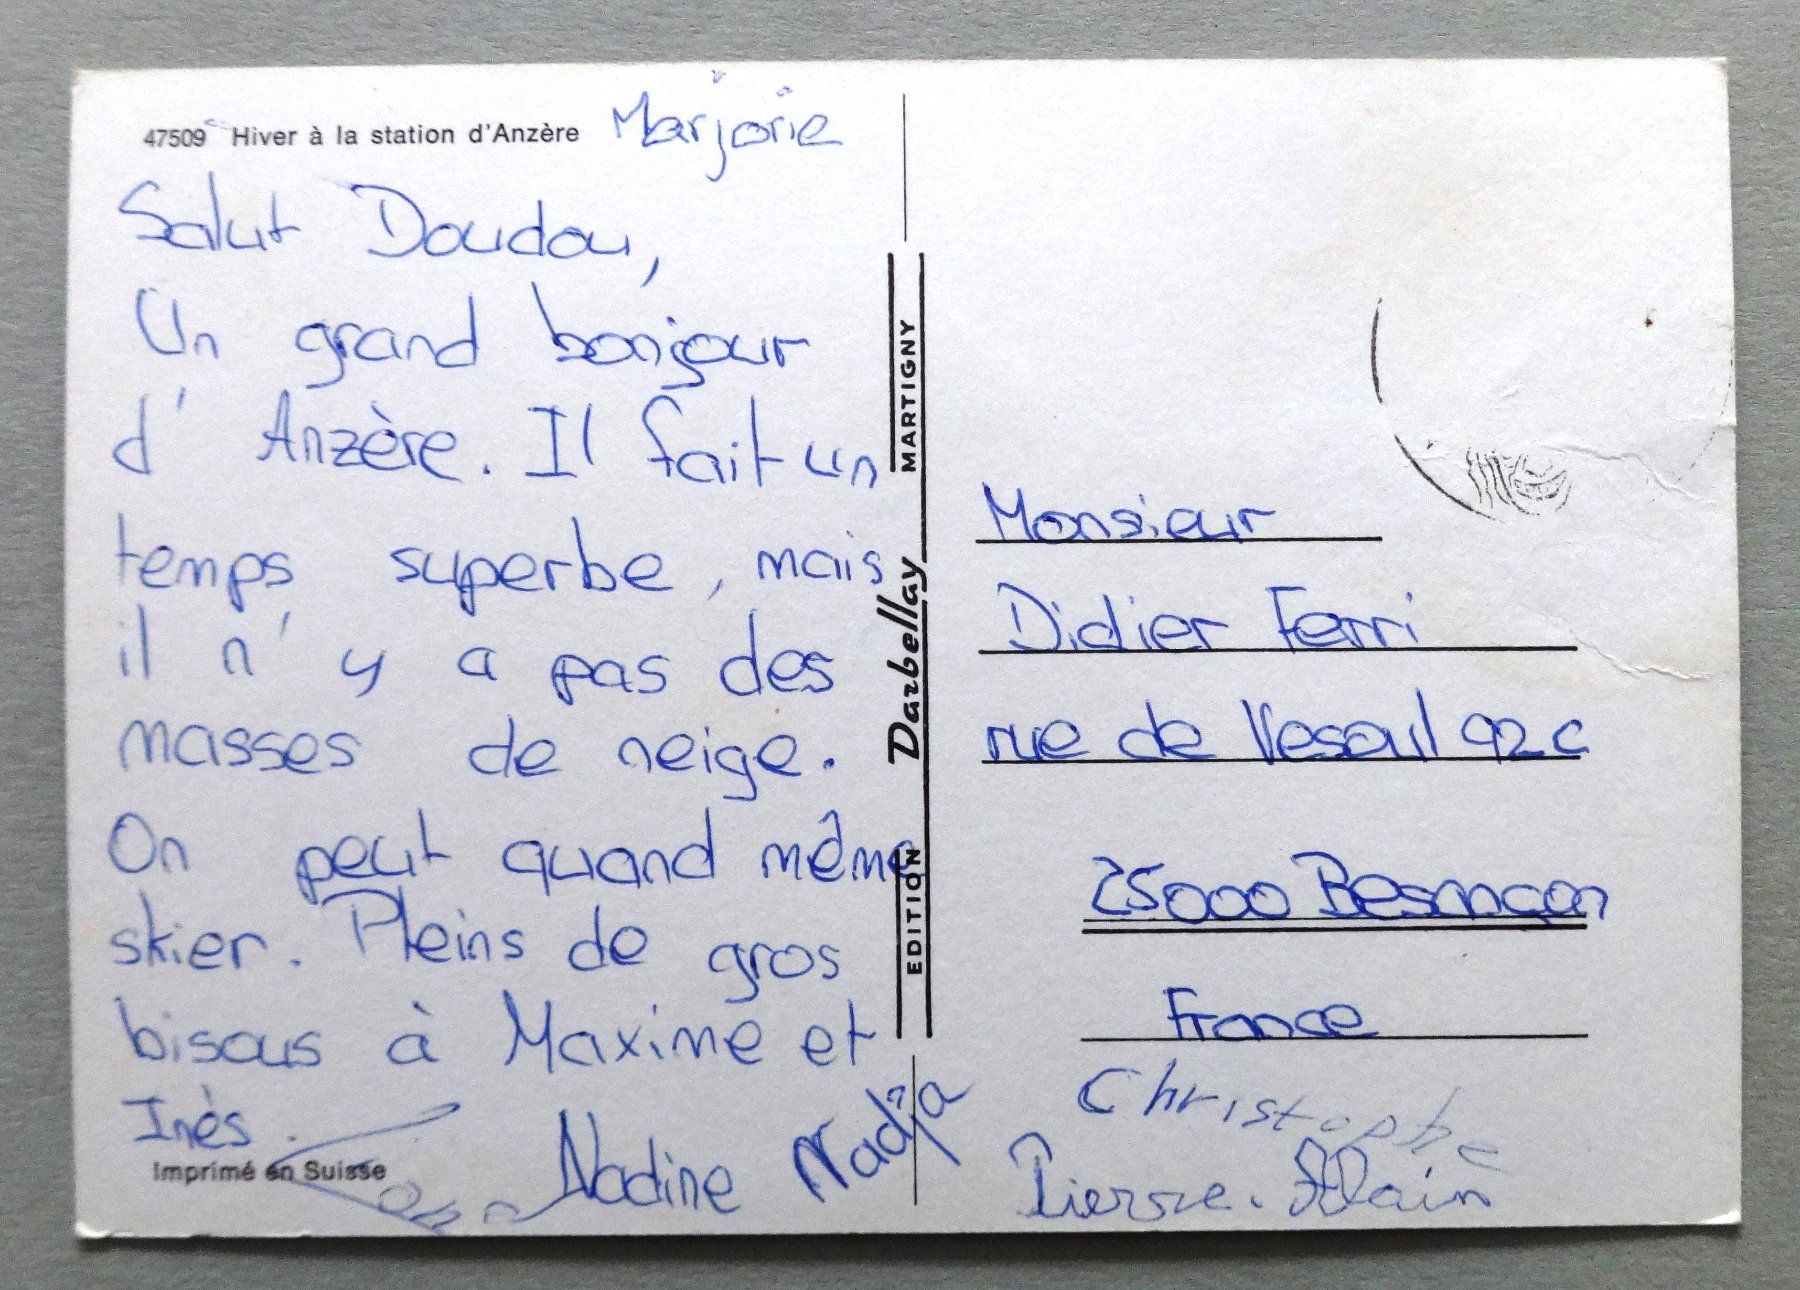 47509 Hiver à la station d'Anzère Marjorie
Salut Doudou,
Un grand bonjour
d'Anzère. Il fait un
temps superbe, mais
il n'y a pas des
masses de neige.
On peut quand même
skier. Pleins de gros
bisous à Maxime et
Inès.
Imprimé en Suisse
Nadine Nadja
EDITION Darbellay MARTIGNY
Monsieur
Didier Ferri
rue de Vesoul 92c
25000 Besançon
France
Christophe
Pierre-Alain